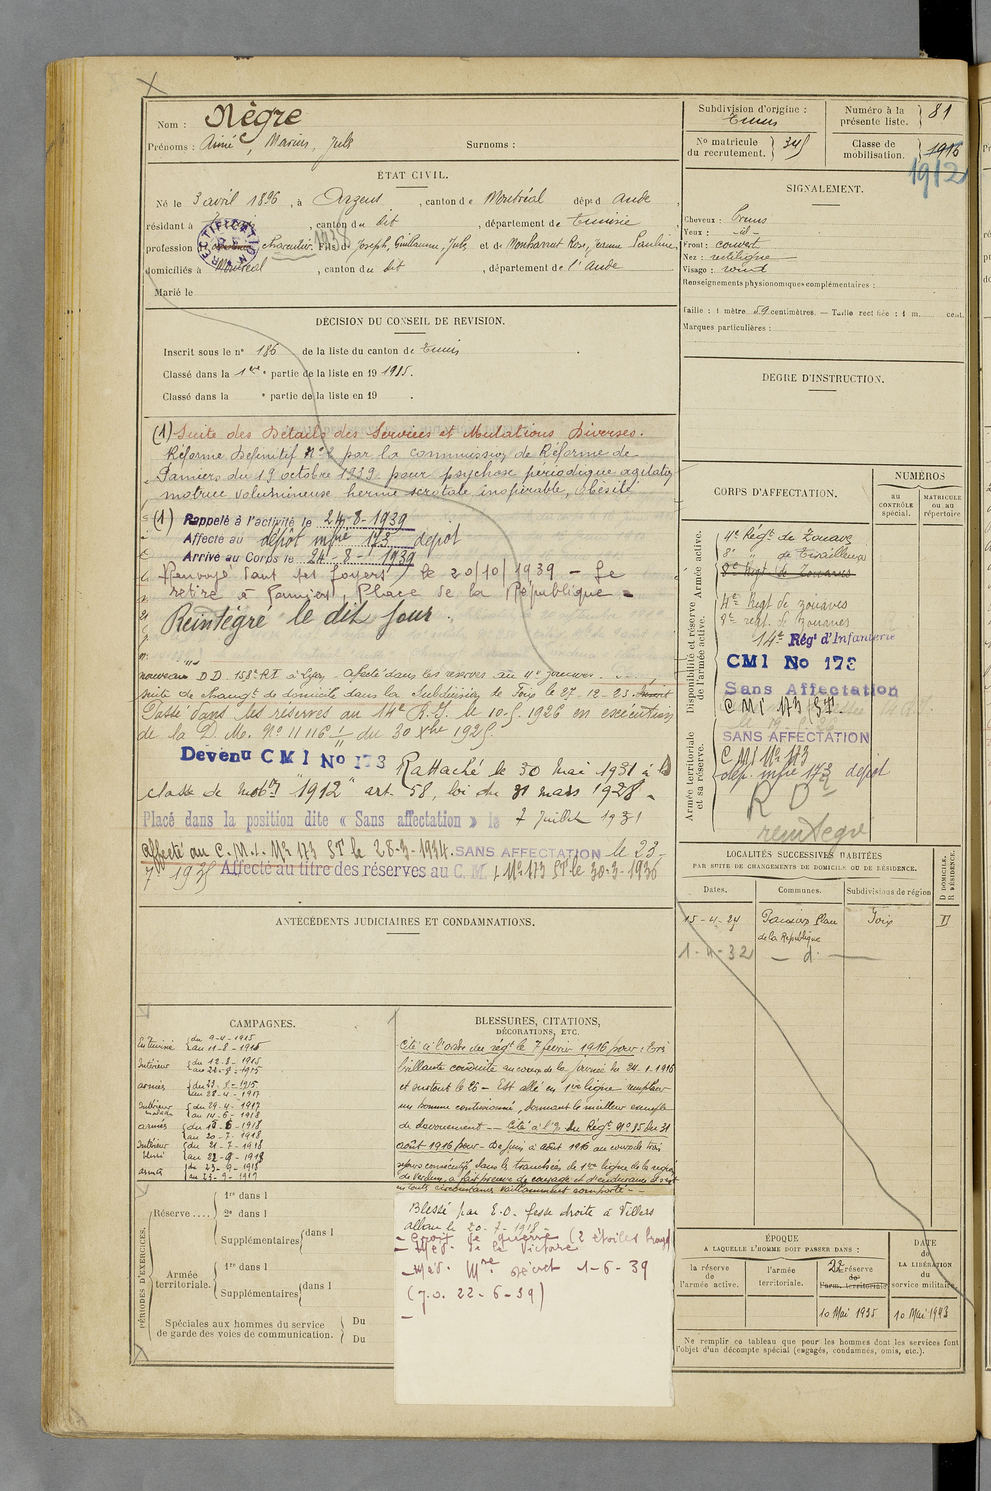 Nom : Nègre
Prénoms : Aimé, Marius, Jules Surnoms :
ÉTAT CIVIL.
Né le 3 avril 1896, à Arzens, canton de Montréal dépt d Aude,
résidant à , canton du dit, département de Tunisie
RECTIFICATION
profession Charcutier 1938 Fils de Joseph, Guillaume, Jules et de Rose, Jeanne Pauline,
domiciliés à Montréal, canton du dit, département de l'Aude
Marié le
DÉCISION DU CONSEIL DE REVISION.
Inscrit sous le n° 186 de la liste du canton de Tunis
Classé dans la 1ère partie de la liste en 19 1915.
Classé dans la e partie de la liste en 19 .
(1) Suite des Détails des Services et Mutations Diverses.
Réforme Définitif N°2 par la commission de Réforme de
Pamiers du 19 octobre 1939 pour psychose périodique agitation
motrice volumineuse hernie scrotale inopérable, obésité
(1) Rappelé à l'activité le 24-8-1939
Affecté au dépôt infie 173 depot
Arrivé au Corps le 24-8-1939
Renvoyé dans ses foyers le 20/10/1939 - Se
retire à Pamiers, Place de la République =
Réintégré le dit jour.
nouveau D D. 158e R I à Lyon - affecté dans les réserves au 4e zouaves.
suite de changt de domicile dans la Subdivision de Foix le 27-12-23.
Passé dans les réserves au 14e R.I. le 10-5-1926 en exécution
de la D. M. N° 11116 1/11 du 30 Xbre 1925
Devenu C M I No 173 Rattaché le 30 mai 1931 à la
classe de mobon "1912" art. 58, loi du 31 mars 1928.
Placé dans la position dite « Sans affectation » le 7 Juillet 1931
affecté au C.M.I. N° 173 ST le 28-3-1934. SANS AFFECTATION le 23-
7 1935 Affecté au titre des réserves au C. M. I N° 173 ST le 30-3-1936
ANTÉCÉDENTS JUDICIAIRES ET CONDAMNATIONS.
CAMPAGNES.
En Tunisie du 9-4-1915
au 11-8-1915
Intérieur du 12-8-1915
au 22-8-1915
armées du 23-8-1915
au 28-4-1917
Intérieur malade du 29-4-1917
au 14-6-1918
armées du 15-6-1918
au 20-7-1918
Intérieur blessé du 21-7-1918
au 22-9-1918
armée du 23-9-1918
au 23-9-1919
BLESSURES, CITATIONS,
DÉCORATIONS, ETC.
Cité à l'ordre du régt le 7 février 1916 pour : très
brillante conduite au cours de la journée du 24-1-1916
et surtout le 25 - Est allé en 1ère ligne remplacer
un homme contusionné, donnant le meilleur exemple
de dévouement - Cité à l'O. du Régt N° 85 du 31
août 1916 pour - De Juin à août 1916 au cours de trois
séjours consécutifs dans les tranchées de 1ère ligne de la région
de Verdun, a fait preuve de courage et d'endurance et s'est
en toute circonstance vaillamment comporté -
Blessé par E.O. fesse droite à Villers
allan le 20-7-1918.
- Croix de guerre (2 étoiles bronze)
- Méd. de la Victoire
- Méd. Mre décret 1-6-39
(J.O. 22-6-39)
PÉRIODES D'EXERCICES.
Réserve .... 1re dans l
2e dans l
Supplémentaires dans l
Armée territoriale. 1re dans l
Supplémentaires dans l
Spéciales aux hommes du service
de garde des voies de communication. Du
Du
Subdivision d'origine :
Tunis
Numéro à la
présente liste. 81
No matricule
du recrutement. 345
Classe de
mobilisation. 1916
1912
SIGNALEMENT.
Cheveux : bruns
Yeux : - id -
Front : couvert
Nez : rectiligne
Visage : rond
Renseignements physionomiques complémentaires :
Taille : 1 mètre 59 centimètres. — Taille rectifiée : 1 m. cent.
Marques particulières :
DEGRÉ D'INSTRUCTION.
CORPS D'AFFECTATION.
NUMÉROS
au CONTRÔLE spécial.
MATRICULE ou au répertoire
Armée active.
4e Régt de Zouaves
8e " de Tirailleurs
8e Régt de Zouaves
Disponibilité et réserve de l'armée active.
4e Regt de zouaves
8e regt de zouaves
14e Régt d'Infanterie
CMI No 173
Sans Affectation
C M I 173 ST.
SANS AFFECTATION
Armée territoriale et sa réserve.
C M I N° 173
dép. infie 173 depot
R D
reintegré
LOCALITÉS SUCCESSIVES HABITÉES
PAR SUITE DE CHANGEMENTS DE DOMICILE OU DE RÉSIDENCE.
D DOMICILE. R RÉSIDENCE.
Dates. Communes. Subdivisions de région
15-4-24 Pamiers Place de la République Foix D
1-4-32 - d° -
ÉPOQUE
A LAQUELLE L'HOMME DOIT PASSER DANS :
DATE de LA LIBÉRATION du service militaire.
la réserve de l'armée active.
l'armée territoriale.
2e réserve
de l'arm. territoriale
10 Mai 1935 10 Mai 1943
Ne remplir ce tableau que pour les hommes dont les services font
l'objet d'un décompte spécial (engagés, condamnés, omis, etc.).